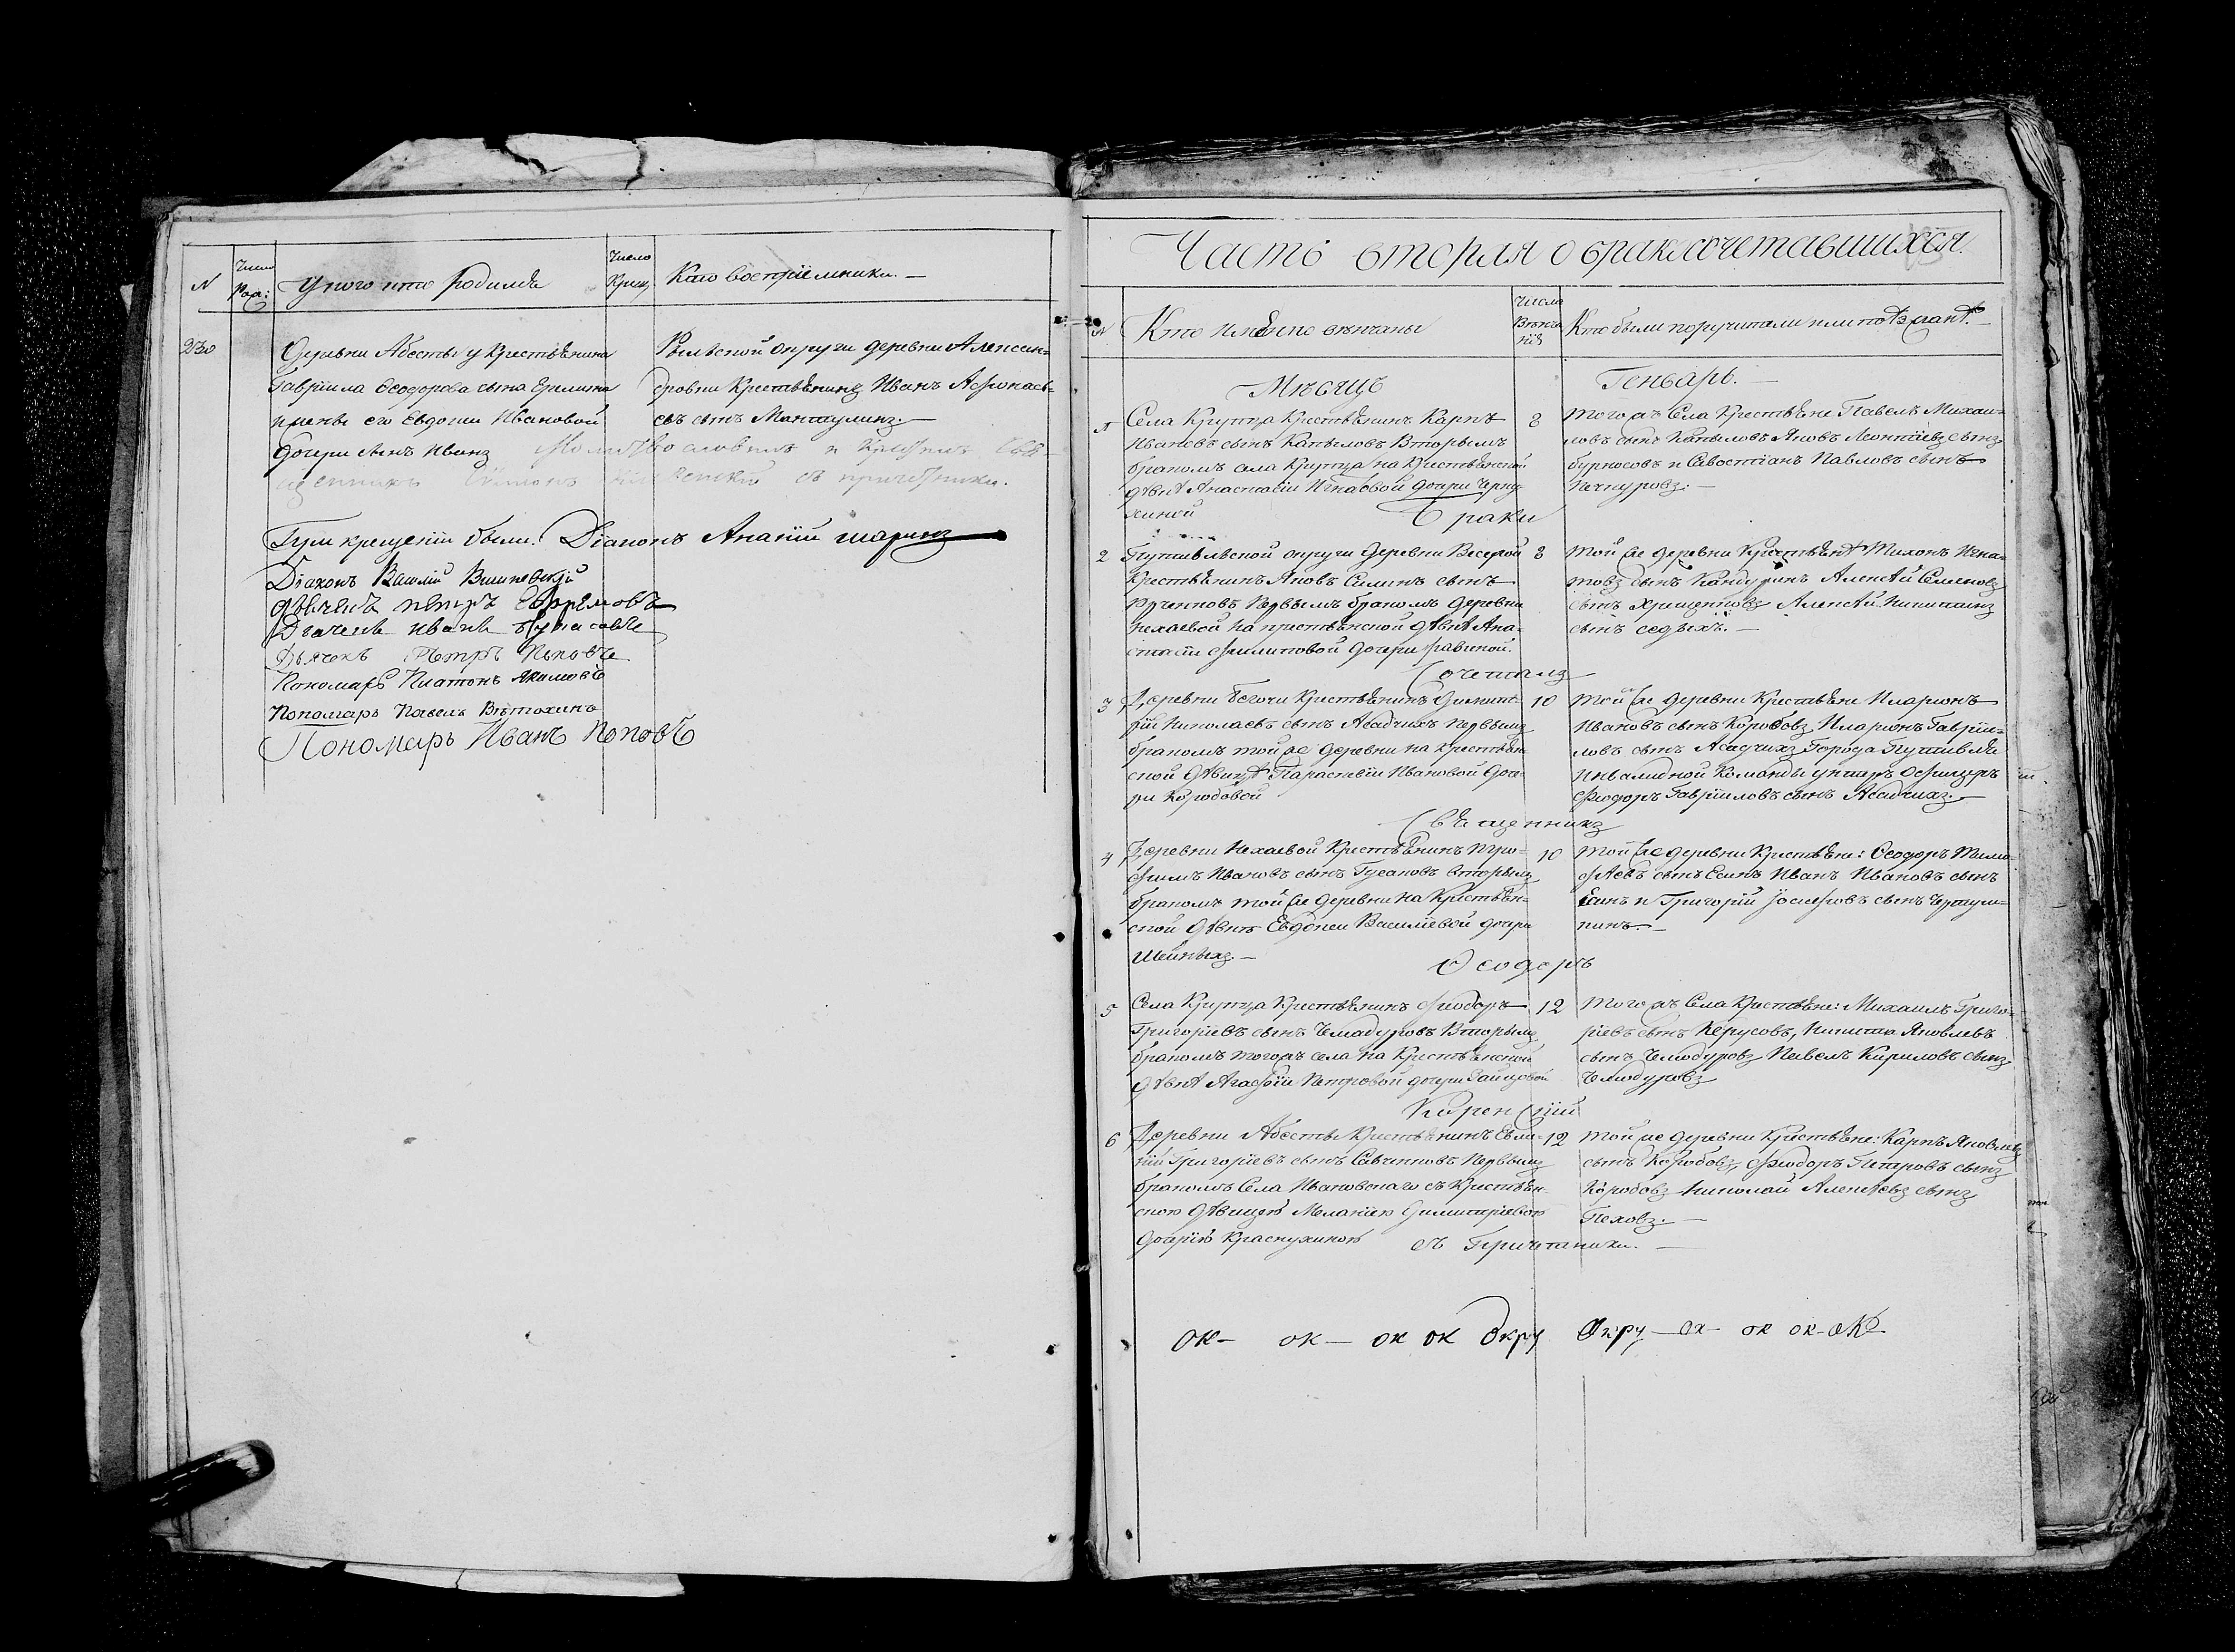 N
Число
Рож:
У кого кто родился
Число
Крещ,
Кто воспріемники. —
230
Деревни Абесты у крестьянина
Гавріила Ѳеодорова сына Ерилина
и жены его Евдокіи Ивановой
дочери сынъ Иванъ
Рыльской округи деревни Алексан=
дровки крестьянинъ Иванъ Афонась=
евъ сынъ Мантулинъ. —
и крестилъ Свя=
щенникъ съ причетники.
При крещеніи были: Діаконъ Ананій
Діаконъ Василій Вишневскій
дьячекъ петръ Ефремовъ
Дьячекъ иванъ
Дьячекъ Петръ Поповъ
Пономарь Платонъ Якимовъ
Пономарь Павелъ
Пономарь Иванъ Поповъ
Часть вторая о бракасочетавшихся.
N
Кто имѣнно вѣнчаны
Числа
Вѣнча
нія
Кто были поручители или поѣзжанѣ. —
Мѣсяцъ
Генварь. —
Села Крупца Крестьянинъ Карпъ
Ивановъ сынъ Капыловъ Вторымъ
бракомъ села Крупца на крестьянской
дѣвкѣ Анастасіи Игнатовой дочери
8
того жъ Села Крестьяне Павелъ Михаи=
ловъ сынъ Капыловъ Яковъ Леонтіевъ сынъ
бурносовъ и Савостіанъ Павловъ сынъ
Печкуровъ. —
Браки
2
Путивльской округи деревни Веселой
Крестьянинъ Яковъ Силинъ сынъ
Первымъ бракомъ деревни
Нехаевой на крестьянской дѣвкѣ Ана=
стасіи Филиповой дочери
8
той же деревни Крестьянѣ Тихонъ Игна=
товъ сынъ Алексѣй Семеновъ
сынъ Хрещенковъ Алексѣй Никитинъ
сынъ седыхъ. —
Сочеталъ
3
Деревни бегочи Крестьянинъ Димит=
рій Николаевъ сынъ Асадчихъ первымъ
бракомъ той же деревни на крестьян=
ской дѣвицѣ Параскевіи Ивановой доче=
ри Коробовой
10
той же деревни Крестьяне Иларіонъ
Ивановъ сынъ Коробовъ, Иларіонъ Гавріи=
ловъ сынъ Асадчихъ Города Путивля
Инвалидной Команды унтаръ офицеръ
Ѳеодоръ Гавріиловъ сынъ Асадчихъ. —
Священникъ
4
Деревни Нехаевой Крестьянинъ Тро=
фимъ Ивановъ сынъ Гусаковъ вторымъ
бракомъ той же деревни на Крестьян=
ской дѣвкѣ Евдокеи Василіевой дочери
Шейныхъ. —
10
той же деревни Крестьяне: Ѳеодоръ Тимо=
фѣевъ сынъ Есинъ Иванъ Ивановъ сынъ
Есинъ и Григорій Іосифовъ сынъ
Ѳеодоръ
5
Села Крупца Крестьянинъ Ѳеодоръ
Григоріевъ сынъ Чемодуровъ Вторымъ
бракомъ тогожъ села на Крестьянской
дѣвкѣ Агафіи Петровой дочери Зайцовой
12
того жъ Села Крестьяне: Михаилъ Григо=
ріевъ сынъ Керусовъ, Никита Яковлевъ
сынъ Чемодуровъ Павелъ Кириловъ сынъ
Чемодуровъ
Коренскій
6
Деревни Абесты Крестьянинъ Евла=
пій Григоріевъ сынъ Савченковъ Первымъ
бракомъ Села Ивановскаго съ Крестьян=
скою дѣвицею Меланіею Димитріевою
дочерію Краснухиною
12
той же деревни Крестьяне: Карпъ Яковлевъ
сынъ Коробовъ, Ѳеодоръ сынъ
Коробовъ Николай Алексѣевъ сынъ
Пеховъ. —
съ Причетники. —
ок — ок — ок ок Окру Окру — ок — ок ок — ок